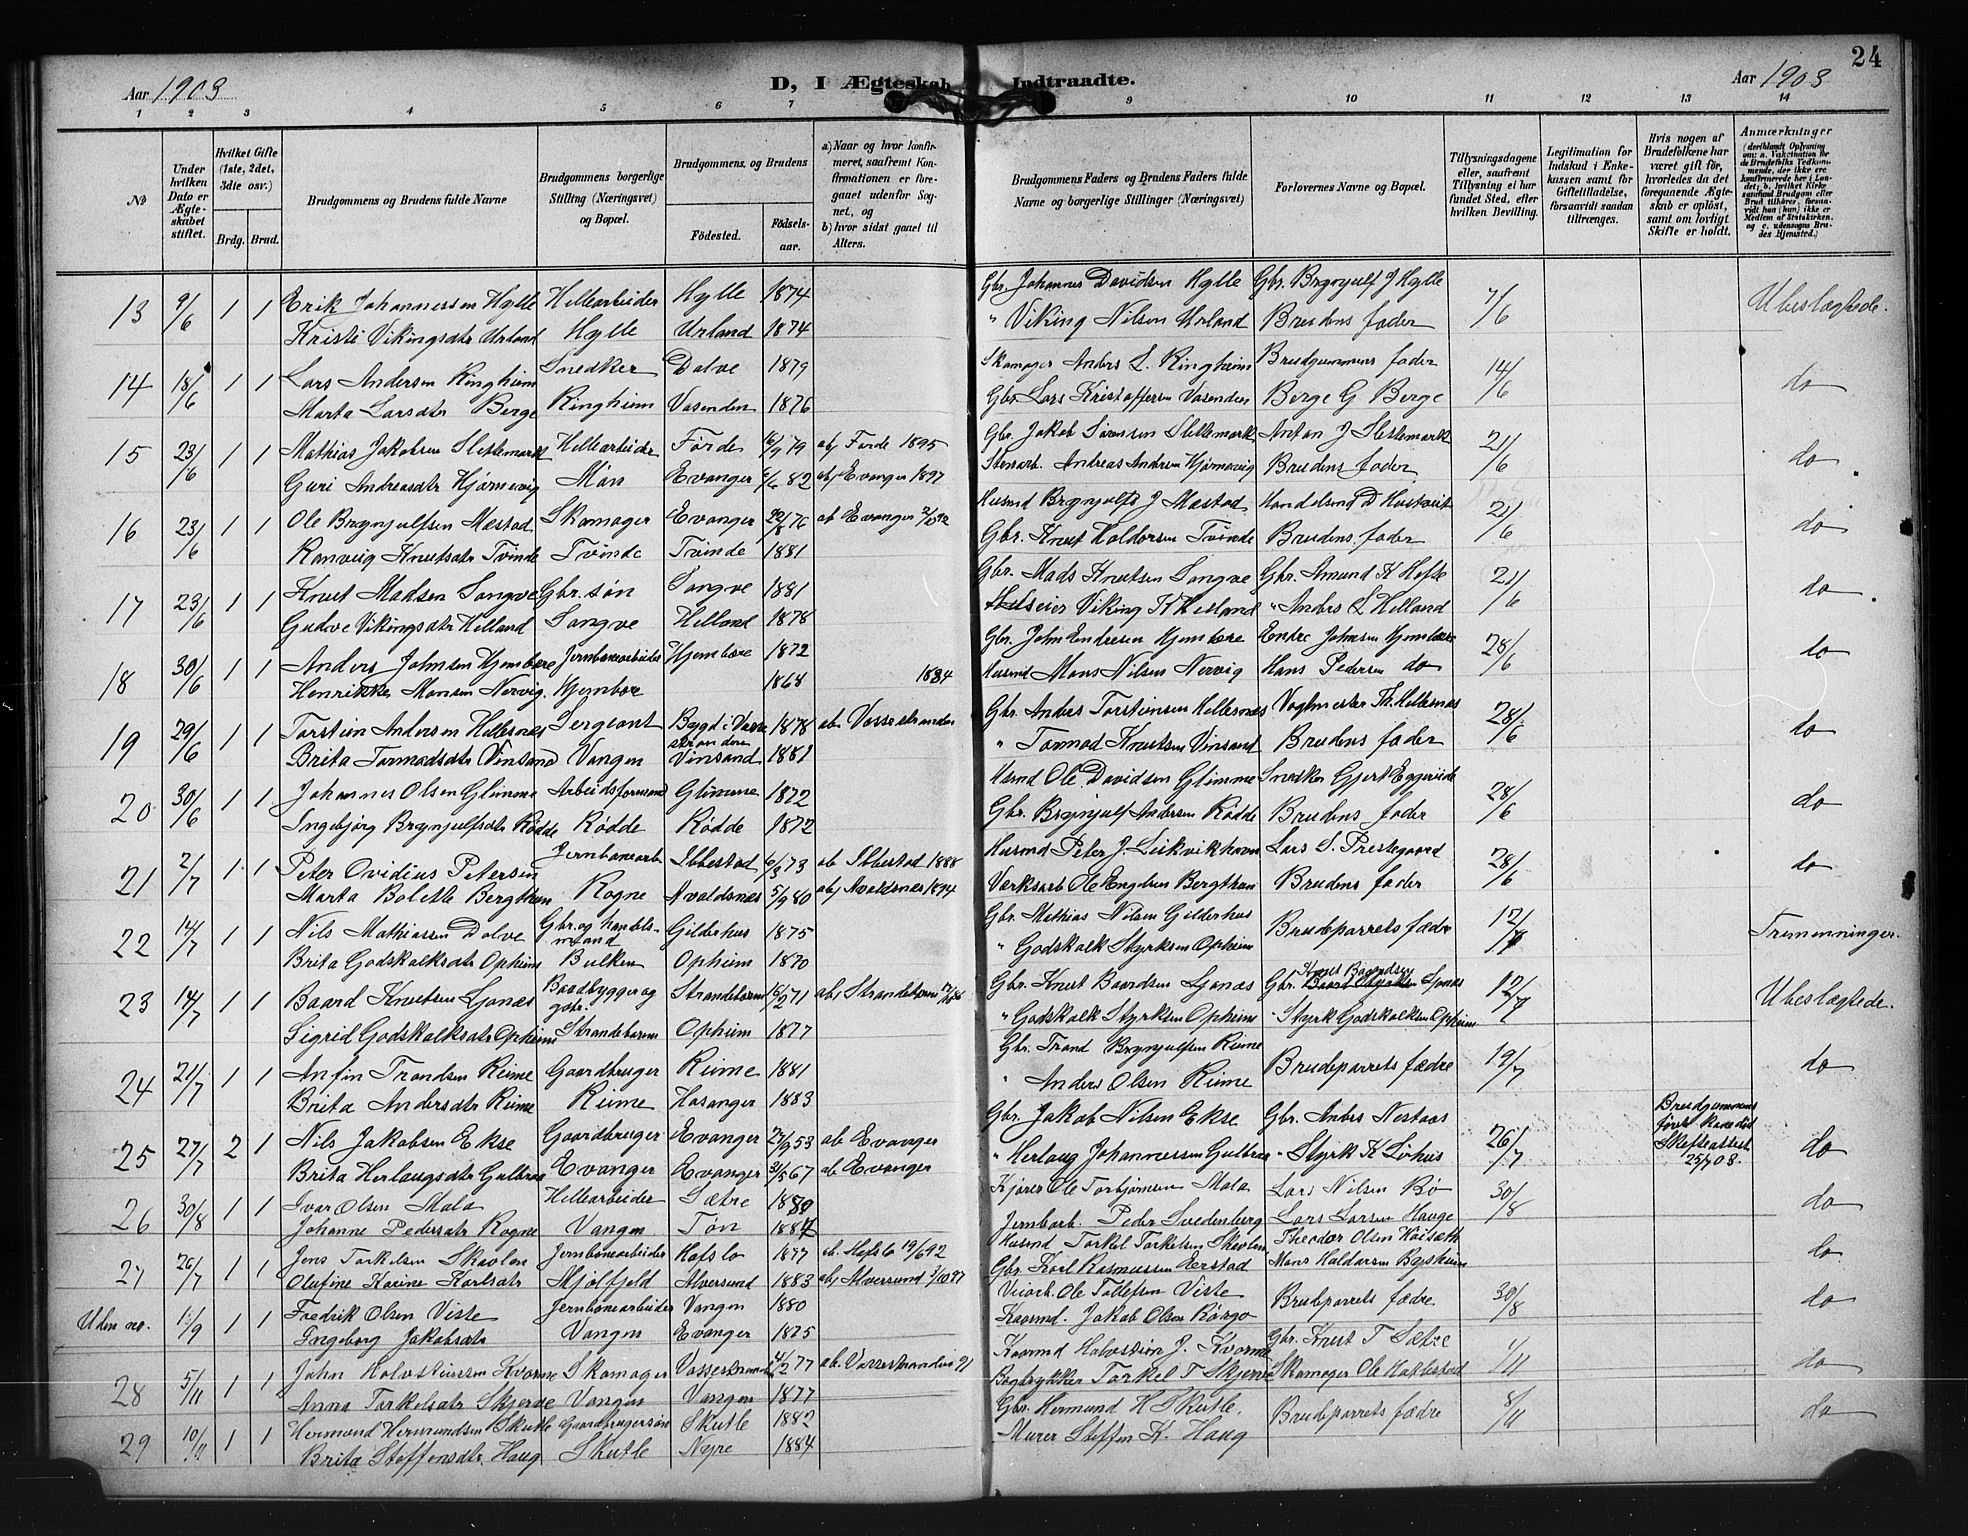 24
Aar 1903 D, I Ægteskab Indtraadte. Aar 1903
1 2 3 4 5 6 7 9 10 11 12 13 14
No
Under hvilken Dato er Ægteskabet stiftet.
Hvilket Gifte (1ste, 2det, 3dte osv.)
Brdg. Brud.
Brudgommens og Brudens fulde Navne
Brudgommens borgerlige Stilling (Næringsvei) og Bopæl.
Brudgommens, og Brudens
Fødested. Fødselsaar.
a) Naar og hvor konfirmeret, saafremt Konfirmationen er foregaaet udenfor Sognet, og
b) hvor sidst gaaet til Alters.
Brudgommens Faders og Brudens Faders fulde Navne og borgerlige Stillinger (Næringsvei)
Forlovernes Navne og Bopæl.
Tillysningsdagene eller, saafremt Tillysning ei har fundet Sted, efter hvilken Bevilling.
Legitimation for Indskud i Enkekassen samt for Giftetilladelse, forsaavidt saadan tiltrænges.
Hvis nogen af Brudefolkene har været gift før, hvorledes da det foregaaende Ægteskab er opløst, samt om lovligt Skifte er holdt.
Anmærkninger
13 9/6 1 1 Erik Johannessen Hylle Hellearbeider Hylle 1874 Gbr. Johannes Davidsen Hylle Gbr. Brynjulf J Hylle 7/6 Ubeslægtede.
Kristi Vikingsdtr Urland Hylle Urland 1874 " Viking Nilsen Urland Brudens fader
14 18/6 1 1 Lars Andersen Ringheim Snedker Dolve 1879 Skomager Anders L. Ringheim Brudgummens fader 14/6 do
Marta Larsdtr Berge Ringheim Vasenden 1876 Gbr Lars Kristoffersen Vasenden Berge G Berge
15 23/6 1 1 Mathias Jakobsen Slettemark Hellearbeider Førde 6/9 79 ab Førde 1895 Gbr. Jakob Sørensen Slettemark Anton J Slettemark 21/6 do
Guri Andreasdtr Hjørnevig Møn Evanger 6/6 82 ab Evanger 1897 Stenarb. Andreas Andersen Hjørnevig Brudens fader
16 23/6 1 1 Ole Brynjulfsen Mestad Skomager Evanger 22/8 76 ab Evanger 2/10 92 Husmd Brynjulf J Mestad Handelsmd D Hustveit 21/6 do
Ranveig Knutsdtr Tvinde Tvinde Tvinde 1881 Gbr. Knut Haldorsen Tvinde Brudens fader
17 23/6 1 1 Knut Madsen Songve Gbr. søn Songve 1881 Gbr. Mads Knutsen Songve Gbr. Amund K Hefte 21/6 do
Gudve Vikingsdtr Helland Songve Helland 1878 Viking K Helland " Anders L Helland
18 30/6 1 1 Anders Johnsen Hjembære Jernbanearbeider Hjembære 1872 Gbr. John Endresen Hjembære Endre Johnsen Hjembære 28/6 do
Henrikke Monsen Nervig Hjembære 1868 1884 Husmd Mons Nilsen Nervig Hans Pedersen do
19 29/6 1 1 Torstein Andersen Hellesnes Sergeant Bygd i Vossestranden 1878 ab Vossestranden Gbr. Anders Torsteinsen Hellesnes Vogtmester Th. Hellesnes 28/6 do
Brita Tormodsdtr Vinsand Vangen Vinsand 1881 " Tormod Knutsen Vinsand Brudens fader
20 30/6 1 1 Johannes Olsen Glimme Arbeidsformand Glimme 1872 Husmd Ole Davidsen Glimme Snedker Gjert Eggereide 28/6 do
Ingebjørg Brynjulfsdtr Rødde Rødde Rødde 1872 Gbr. Brynjulf Andersen Rødde Brudens fader
21 2/7 1 1 Peter Ovidius Petersen Jernbanearb Ibbestad 6/3 73 ab Ibbestad 1888 Husmd Peter J. Leikvikhavn Lars S. Prestegaard 28/6 do
Marta Bolette Bergthun Rogne Avaldsnes 5/9 80 ab Avaldsnes 1894 Værksarb Ole Engelsen Bergthun Brudens fader
22 14/7 1 1 Nils Mathiassen Dolve Gbr. og handelsmand Gilderhus 1875 Gbr. Mathias Nilsen Gilderhus Brudeparrets fædre 12/7 Tremenninger.
Brita Godskalksdtr Opheim Bulken Opheim 1870 " Godskalk Styrksen Opheim
23 14/7 1 1 Baard Knutsen Ljønæs Baadbygger og gbr. Strandebarm 16/2 71 ab Strandebarm Gbr. Knut Baardsen Ljønæs Gbr. Knut Baardsen Ljønæs 12/7 Ubeslægtede.
Sigrid Godskalksdtr Opheim Strandebarm Opheim 1877 " Godskalk Styrksen Opheim " Styrk Godskalksen Opheim
24 21/7 1 1 Anfin Trondsen Rieme Gaardbruger Rieme 1881 Gbr. Trond Brynjulfsen Rieme Brudeparrets fædre 19/7 do
Brita Andersdtr Rieme Rieme Hosanger 1883 " Anders Olsen Rieme
25 27/7 2 1 Nils Jakobsen Ekse Gaardbruger Evanger 27/9 53 ab Evanger Gbr. Jakob Nilsen Ekse Gbr. Anders Nestaas 26/7 Brudgummens første Kone død Skifteattest 25/7 08. do
Brita Herlaugsdtr Gulbraa Evanger Evanger 31/5 67 ab Evanger " Herlaug Johannessen Gulbraa " Styrk K Lirhus
26 30/8 1 1 Ivar Olsen Mala Hellearbeider Sætre 1880 Kjører Ole Torbjørnsen Mala Lars Nilsen Bø 30/8 do
Johanne Pedersdtr Rogne Vangen Tøn 1884 Jernbarb. Peder Svedenberg Lars Larsen Hauge
27 26/7 1 1 Jens Torkelsen Skovlen Jernbanearbeider Hafslo 1877 ab. Hafslo 19/6 92 Husmd Torkel Torkelsen Skovlen Theodor Olsen Høisæth do
Olufine Karine Karlsdtr Mjølfjeld Alversund 1883 ab Alversund 3/10 97 Gbr. Karl Rasmussen Eerstad Mons Haldorsen Bøjsheim
Uden no. 1/9 1 1 Fredrik Olsen Viste Jernbanearbeider Vangen 1880 Veiarb. Ole Tollefsen Viste Brudeparrets fædre. 30/8 do
Ingeborg Jakobsdtr Vangen Evanger 1875 Kaarmd. Jakob Olsen Børgo
28 5/11 1 1 John Holvsteinssen Kvarme Skomager Vossestranden 4/2 77 ab. Vossestranden 91 Kaarmd Holvstein J. Kvarme Gbr. Knut T Sætre 1/11 do
Anna Torkelsdtr Skjerve Vangen Vangen 1877 Bogtrykker Torkel T Skjerve Skomager Ole Hallestad
29 10/11 1 1 Hermond Hermundsen Skutle Gaardbrugersøn Skutle 1882 Gbr. Hermund H Skutle. Brudeparrets fædre 8/11 do
Brita Steffensdtr. Haug Skutle Nyre 1884 Murer Steffen K. Haug